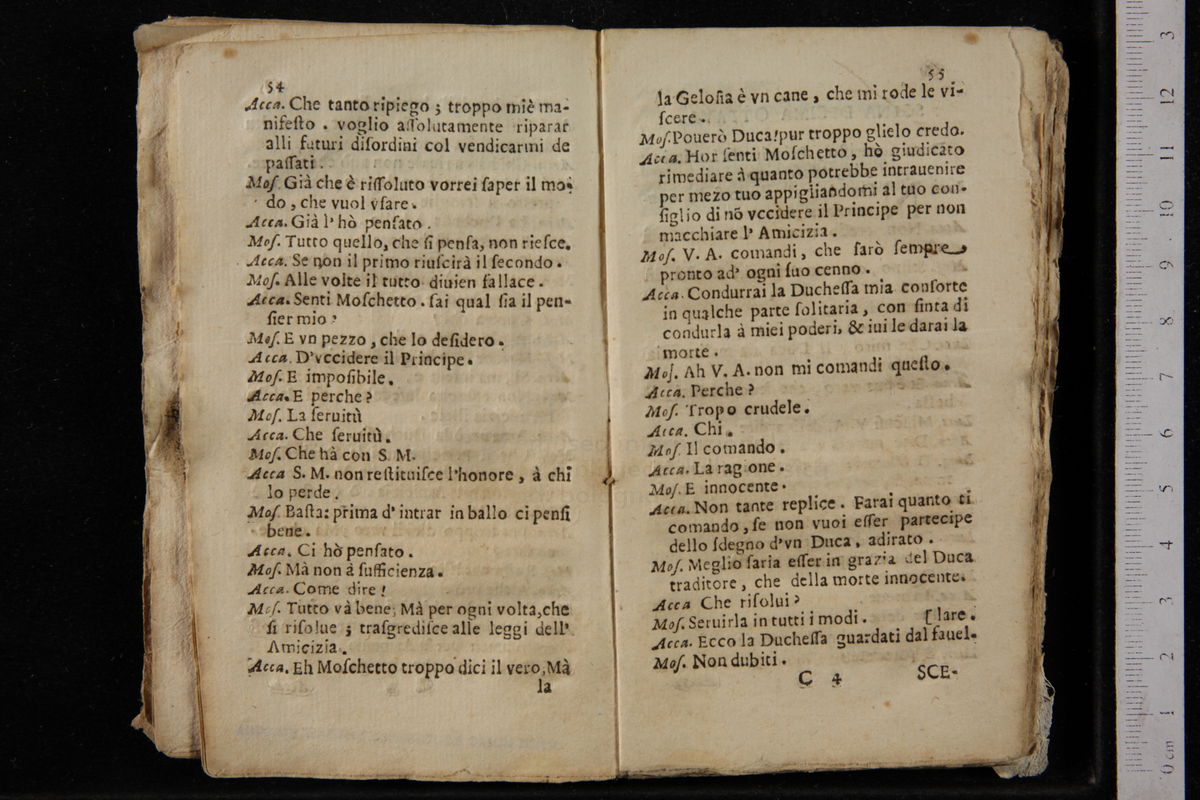 54
Acca. Che tanto ripiego ; troppo miè ma-
nifeſto . voglio aſſolutamente riparar
alli futuri diſordini col vendicarmi de
paſſati .
Moſ. Già che è riſſoluto vorrei ſaper il mo-
do , che vuol vſare .
Acca. Già l' hò penſato .
Moſ. Tutto quello, che ſi penſa, non rieſce.
Acca. Se non il primo riuſcirà il ſecondo .
Moſ. Alle volte il tutto diuien fallace .
Acca. Senti Moſchetto . ſai qual ſia il pen-
ſier mio ?
Moſ. E vn pezzo , che lo deſidero .
Acca. D'vccidere il Principe .
Moſ. E impoſibile .
Acca. E perche ?
Moſ. La ſeruitù
Acca. Che ſeruitù .
Moſ. Che hà con S. M.
Acca S. M. non reſtituiſce l'honore , à chi
lo perde .
Moſ. Baſta: prima d' intrar in ballo ci penſi
bene .
Acca. Ci hò penſato .
Moſ. Mà non à ſufficienza .
Acca. Come dire !
Moſ. Tutto và bene; Mà per ogni volta, che
ſi riſolue ; traſgrediſce alle leggi dell'
Amicizia .
Acca. Eh Moſchetto troppo dici il vero, Mà
la
55
la Geloſia è vn cane , che mi rode le vi-
ſcere .
Moſ. Pouerò Duca! pur troppo glielo credo.
Acca. Hor ſenti Moſchetto , hò giudicato
rimediare à quanto potrebbe intrauenire
per mezo tuo appigliandomi al tuo con-
ſiglio di nõ vccidere il Principe per non
macchiare l' Amicizia .
Moſ. V. A. comandi , che farò ſempre
pronto ad' ogni ſuo cenno .
Acca. Condurrai la Ducheſſa mia conſorte
in qualche parte ſolitaria , con finta di
condurla à miei poderi, & iui le darai la
morte .
Moſ. Ah V. A. non mi comandi queſto .
Acca. Perche ?
Moſ. Tropo crudele .
Acca. Chi .
Moſ. Il comando .
Acca. La ragione .
Moſ. E innocente .
Acca. Non tante replice . Farai quanto ti
comando , ſe non vuoi eſſer partecipe
dello ſdegno d'vn Duca , adirato .
Moſ. Meglio ſaria eſſer in grazia del Duca
traditore , che della morte innocente.
Acca Che riſolui ?
Moſ. Seruirla in tutti i modi . [ lare .
Acca. Ecco la Ducheſſa guardati dal fauel-
Moſ. Non dubiti .
C 4 SCE-